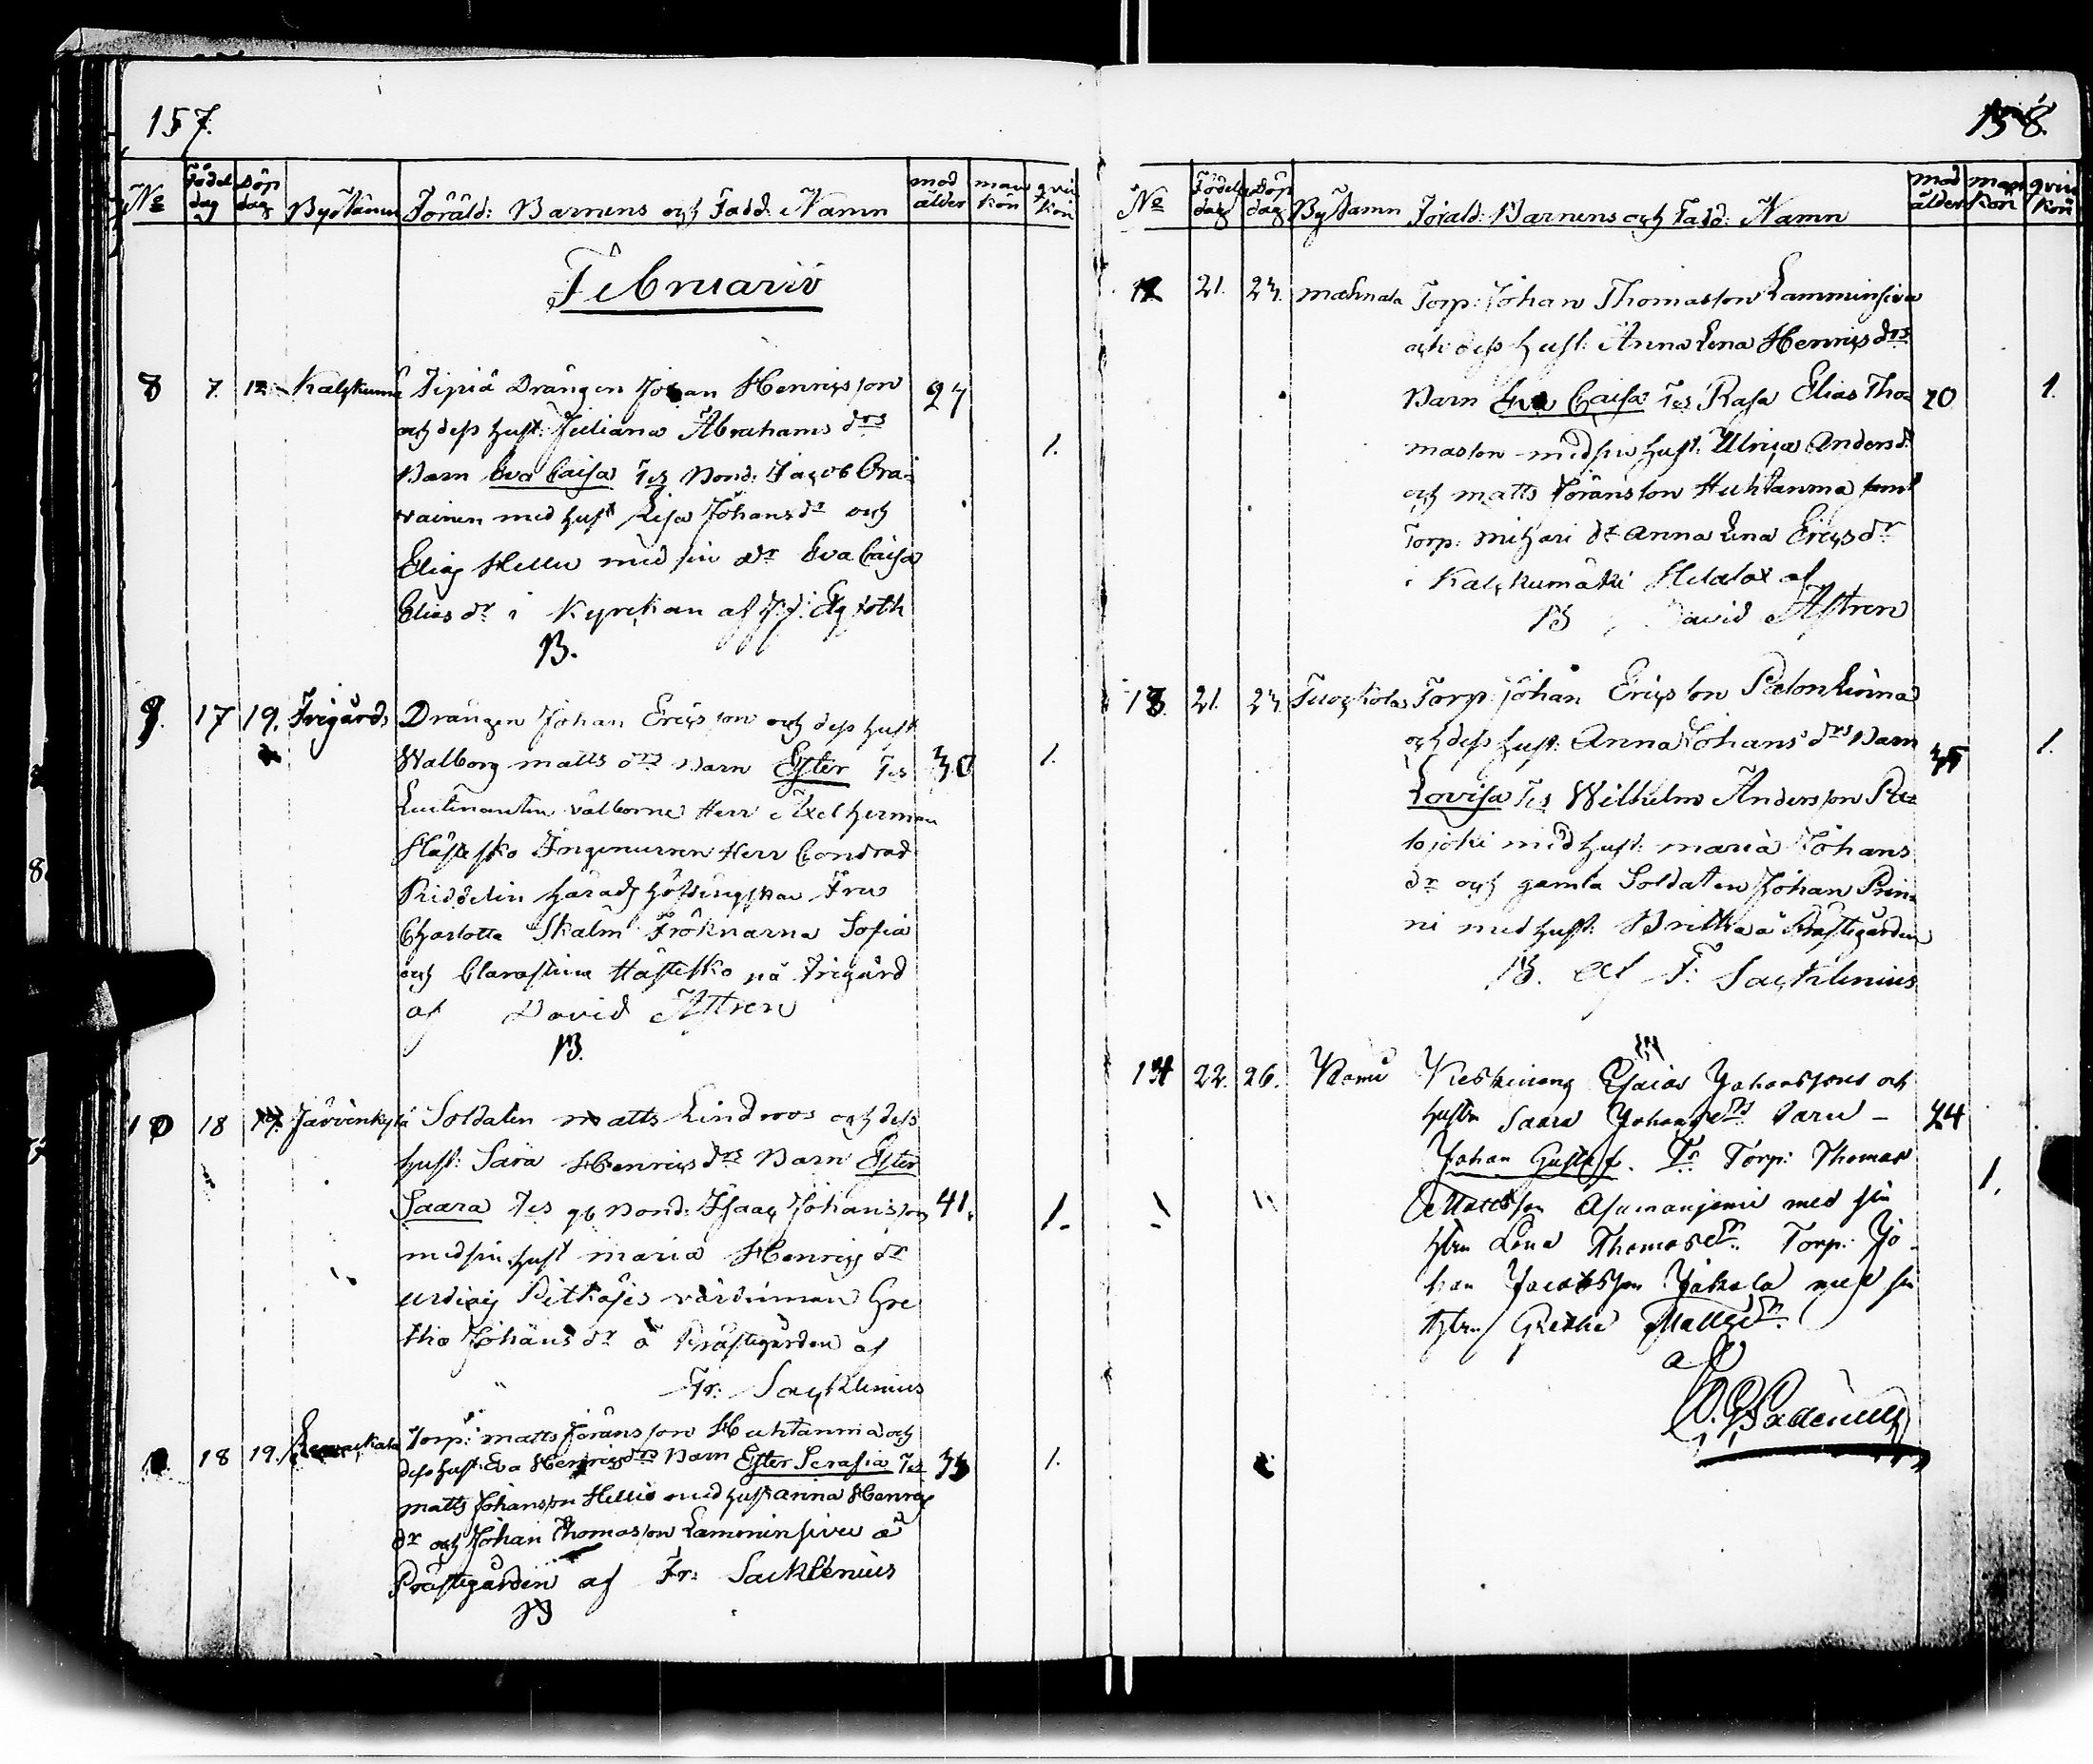 157.
No Födel dag Döp dag ByöNamn Föräld: Barnens och Fadd. Namn mod ålder man kön qvin kön
Februarii
8 7. 12 Kalkkumä Tipiä Drängen Johan Henricsson 27
och dess hust: Juliana Abrahams drs 1.
Barn Eva Caisa Tes Bond: Jacob Ora=
vainen med hust Lisa Johans dr och
Elias Hellu med sin dr Eva Caisa
Elias dr i Kyrckan af
B.
9. 17 19. Frigårds Drängen Johan Ericsson och dess hust
Walborg matts drs Barn Ester Tes 30 1.
Lieutenanten välborne Herr Axel Herman
Hästesko Ingenieuren Herr Conrad
Riddelin häradshöfdingskan Fru
Charlotta Skalm Fröknarna Sofia
och Clarastina Hästesko på Frigård
af David Astren
B.
10 18 19. Järvenkylä Soldaten matts Lindroos och dess
hust: Sara Henrics drs Barn Ester
Saara Tes gb Bond: Isaac Johansson 41. 1.
med sin hust maria Henrics dr
Pitkäjes värdinnan Gre
tha Johans dr å Prästegården af
Fr: Sacklenius
18 19. Torp: matts Jöransson Huhtanmia och
dess hust: Eva Henrics drs Barn Ester Serafia Tes 33 1.
matts Johansson Hellu med hust anna Henrics
dr och Johan Thomasson Lamminsivu å
Prästegården af Fr: Sacklenius
B
158.
No Födel dag Döp dag By Namn Föräld: Barnens och Fadd: Namn mod ålder man kön qvin kön
12 21. 24. mahnala Torp: Johan Thomasson Lamminsivu
och dess hust: Anna Lena Henrics drs
Barn Eva Caisa Tes Rasa Elias Tho= 20 1.
masson med sin hust: Ulrica Anders d.
och matts Jöransson Huhtanma samt
Torp: mihari dr Anna Lena Erics dr
i Kalkkumäki Helalax af
B David Astren
13. 21. 24. Tuockola Torp: Johan Ericsson Palonkinma
och dess hust: Anna Johans drs Barn 35 1.
Lovisa Tes Wilhelm Andersson Pa=
lojoki med hust: maria Johans
dr och gamla Soldaten Johan Prin=
ni med hust: Britha å Prästegården
B. af F: Sacklenius
14 22. 26. Esaias Johanssons och
hustr Saara Johansdrs Barn – 24
Johan Gustaf. Ts Torp: Thomas 1.
Mattsson Asumanjemi med sin
hstru Lena Thomasdr. Torp: Jo-
han Jacobsson Jakala med sin
hstru Gretha Mattsdr.
af